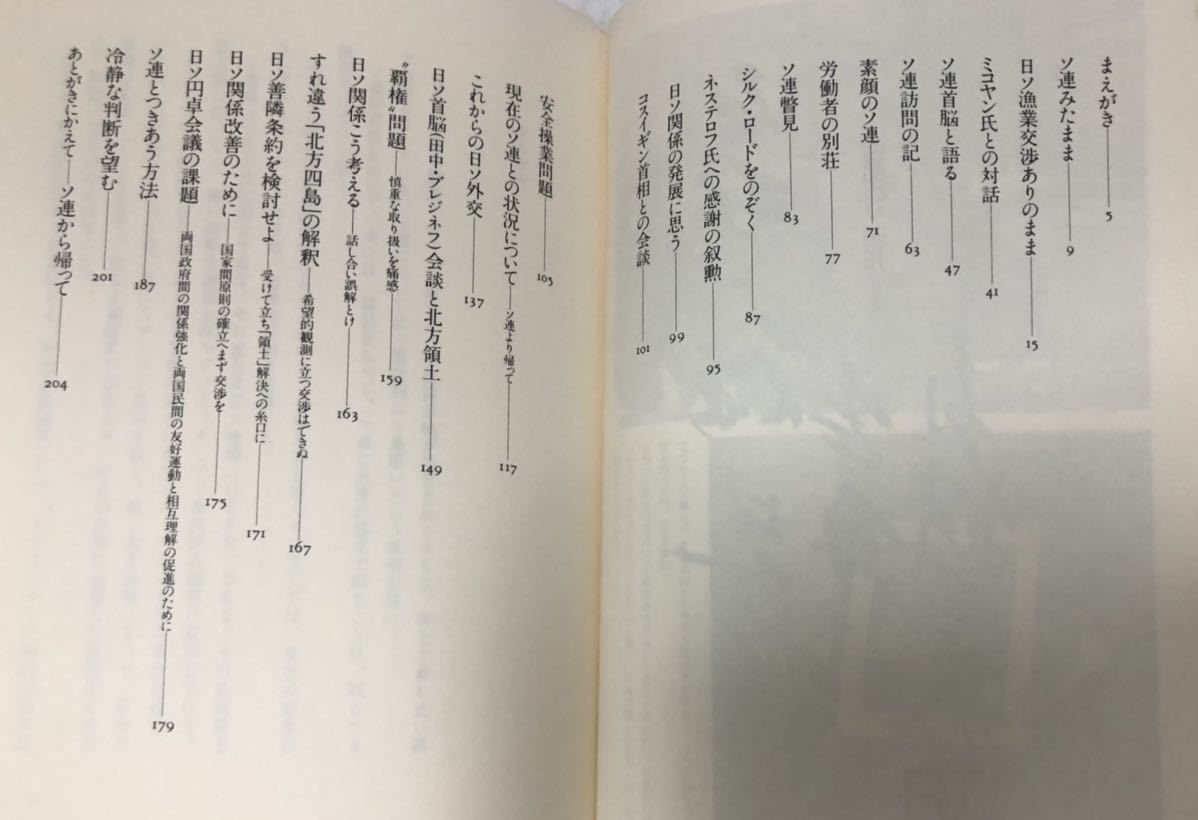 まえがき――5
ソ連みたまま――9
日ソ漁業交渉ありのまま――15
ミコヤン氏との対話――41
ソ連首脳と語る――47
ソ連訪問の記――63
素顔のソ連――71
労働者の別荘――77
ソ連瞥見――83
シルク・ロードをのぞく――87
ネステロフ氏への感謝の叙勲――95
日ソ関係の発展に思う――99
コスイギン首相との会談――101
安全操業問題――105
現在のソ連との状況について――ソ連より帰って――117
これからの日ソ外交――137
日ソ首脳(田中・ブレジネフ)会談と北方領土――149
"覇権"問題――慎重な取り扱いを痛感――159
日ソ関係こう考える――話し合い誤解とけ――163
すれ違う「北方四島」の解釈――希望的観測に立つ交渉はできぬ――167
日ソ善隣条約を検討せよ――受けて立ち「領土」解決への糸口に――171
日ソ関係改善のために――国家間原則の確立へまず交渉を――175
日ソ円卓会議の課題――両国政府間の関係強化と両国民間の友好運動と相互理解の促進のために――179
ソ連とつきあう方法――187
冷静な判断を望む――201
あとがきにかえて――ソ連から帰って――204